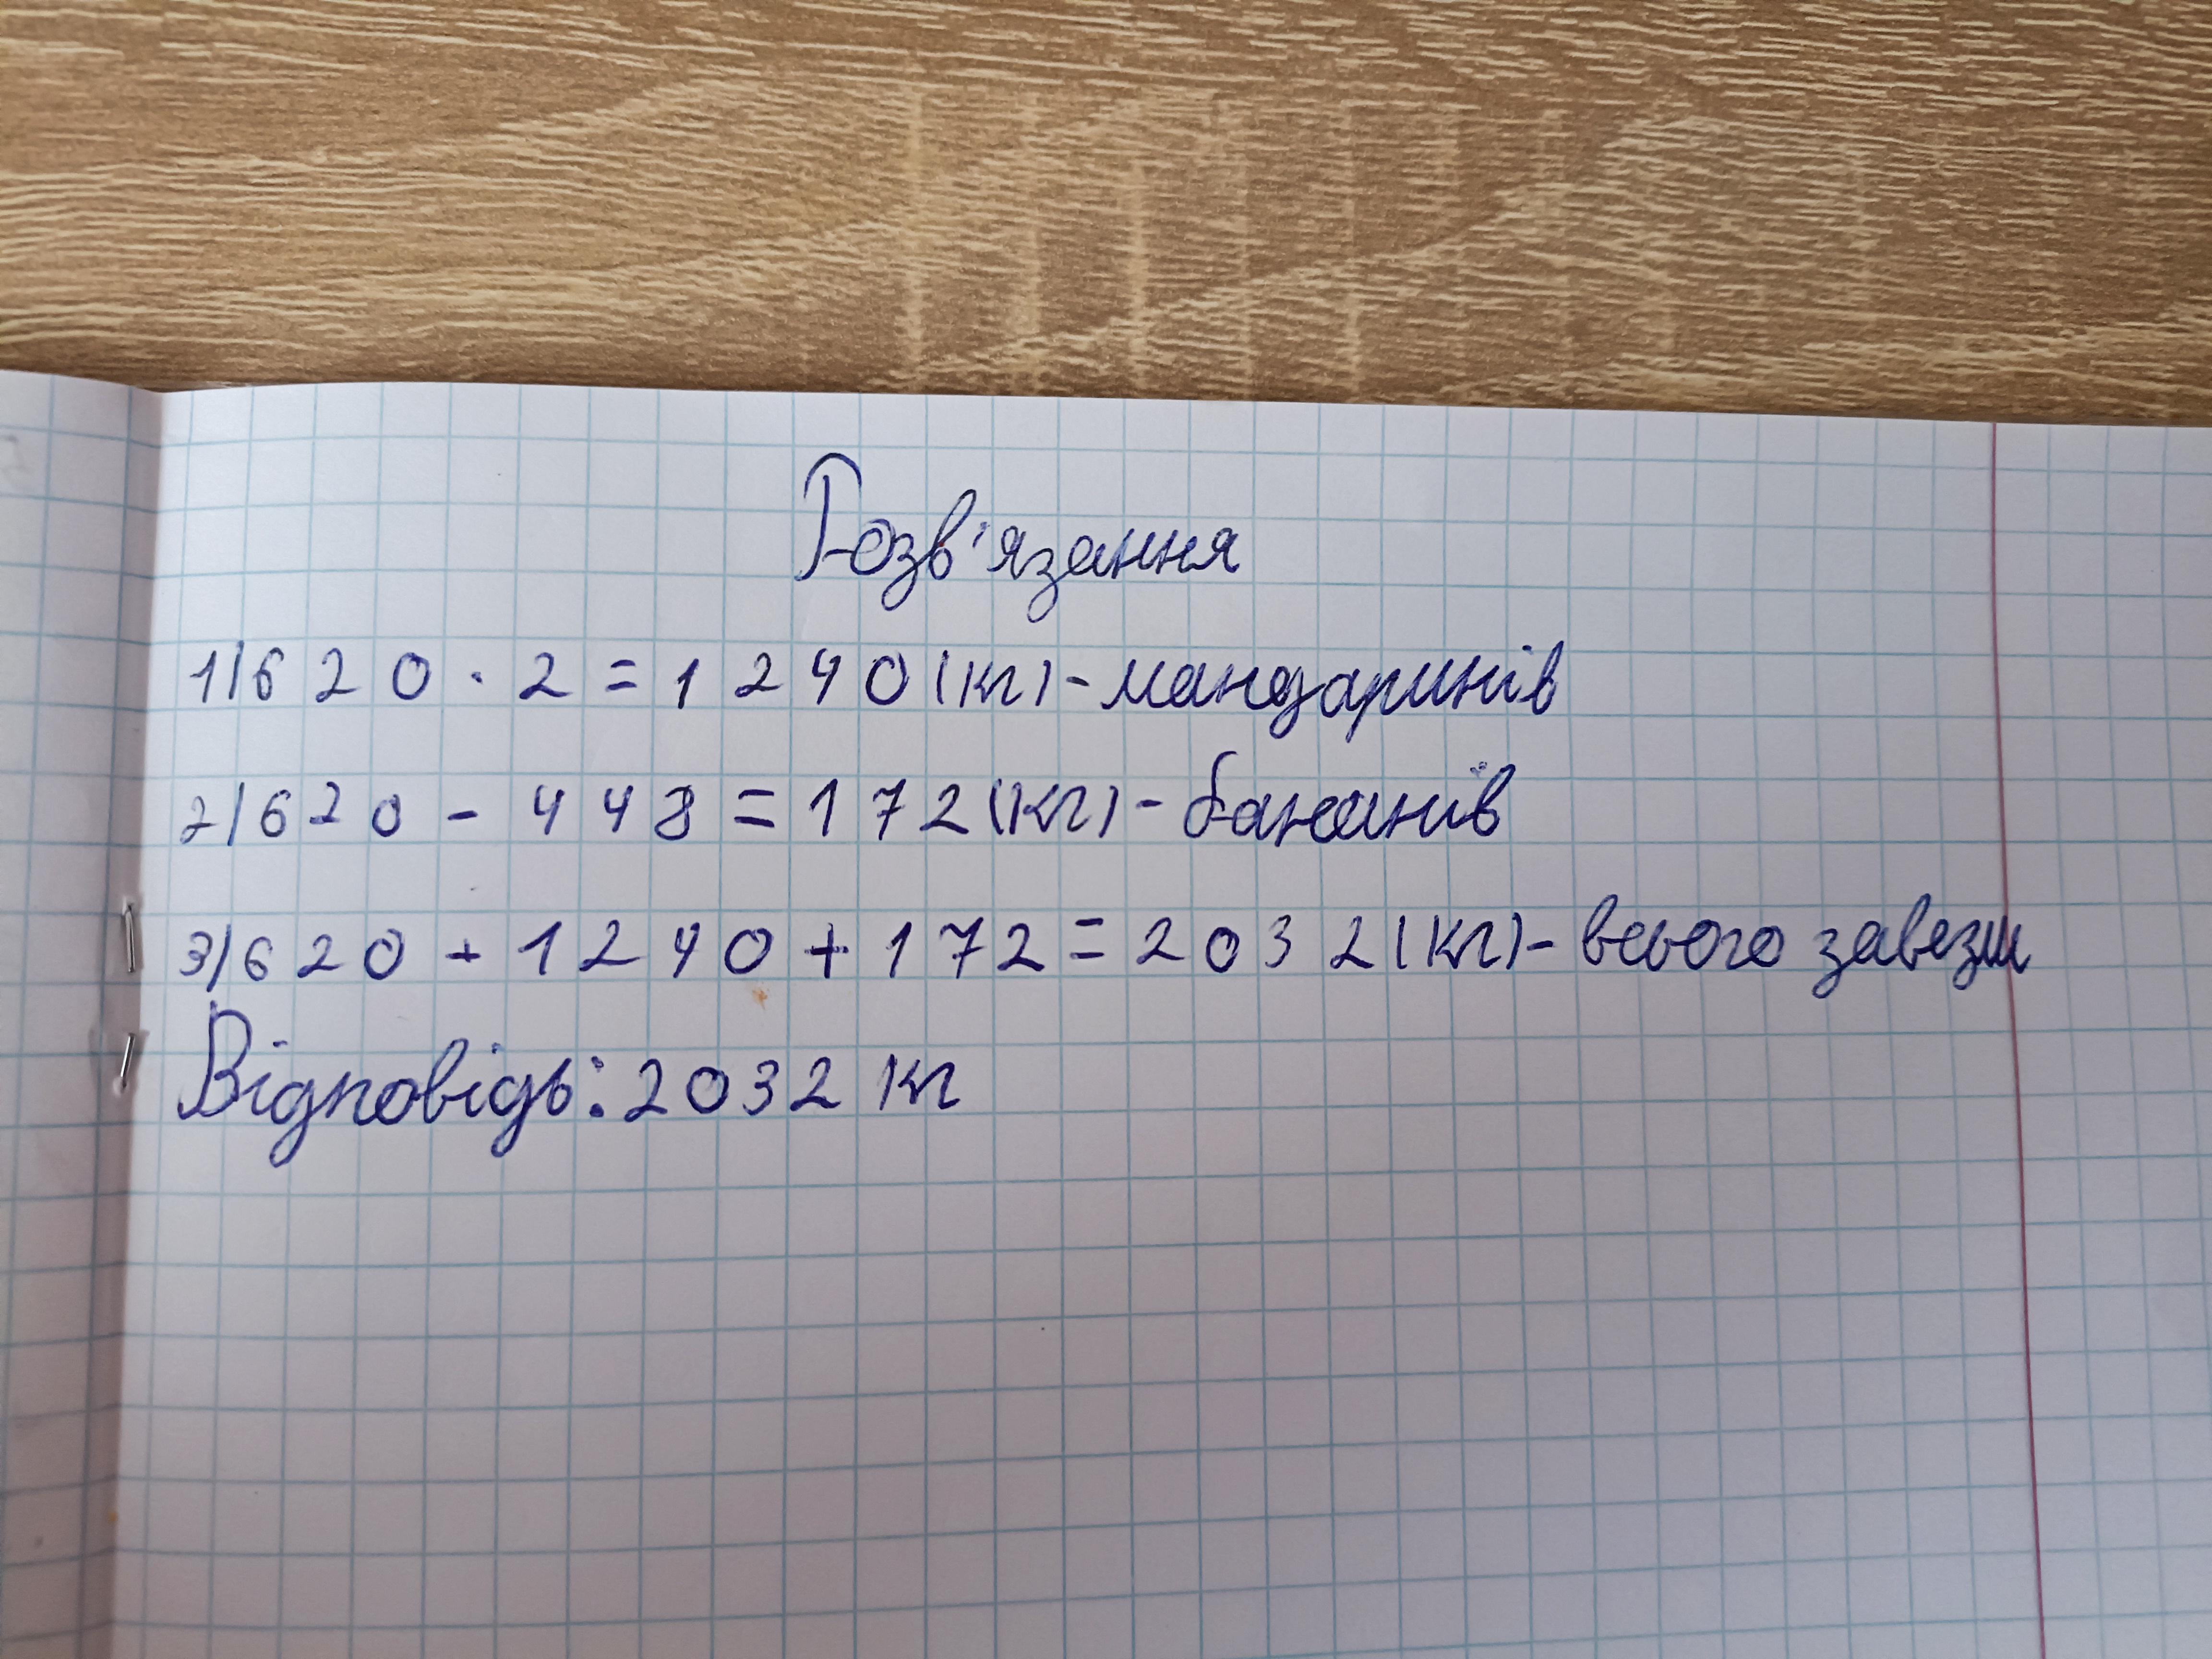 Розв'язання
1) 620 · 2 = 1240 (кг) - мандаринів
2) 620 - 448 = 172 (кг) - бананів
3) 620 + 1240 + 172 = 2032 (кг) - всього завезли
Відповідь: 2032 кг